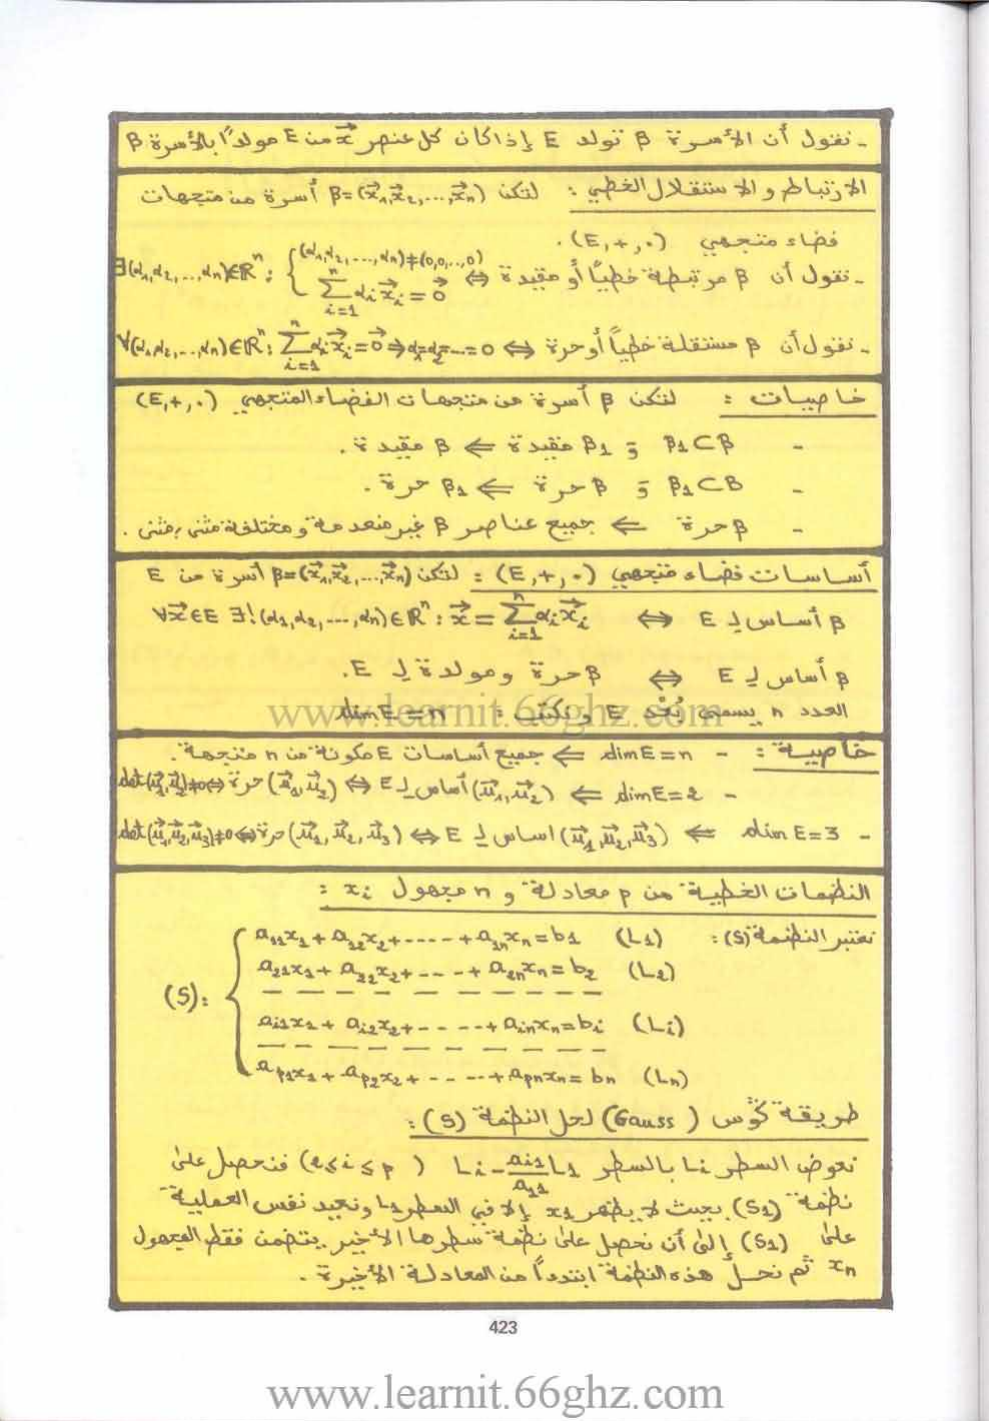 - نقول أن الأسرة β تولد E إذا كان كل عنصر x⃗ من E مولداً بالأسرة β
الارتباط والاستقلال الخطي : لتكن β=(x⃗₁,x⃗₂,...,x⃗ₙ) أسرة من متجهات
فضاء متجهي (E,+,·).
- نقول أن β مرتبطة خطياً أو مقيدة ⇔ ∃(α₁,α₂,...,αₙ)∈ℝⁿ : { (α₁,α₂,...,αₙ)≠(0,0,...,0)
∑ᵢ₌₁ⁿ αᵢx⃗ᵢ = 0⃗
- نقول أن β مستقلة خطياً أو حرة ⇔ ∀(α₁,α₂,...,αₙ)∈ℝⁿ : ∑ᵢ₌₁ⁿ αᵢx⃗ᵢ=0⃗ ⇒ α₁=α₂=...=0
خاصيات : لتكن β أسرة من متجهات الفضاء المتجهي (E,+,·)
- β₁⊂β و β₁ مقيدة ⇐ β مقيدة.
- β₁⊂B و β حرة ⇐ β₁ حرة.
- β حرة ⇐ جميع عناصر β غير منعدمة ومختلفة مثنى مثنى.
أساسات فضاء متجهي (E,+,·) : لتكن β=(x⃗₁,x⃗₂,...,x⃗ₙ) أسرة من E
β أساس لـ E ⇔ ∀x⃗∈E ∃!(α₁,α₂,...,αₙ)∈ℝⁿ : x⃗ = ∑ᵢ₌₁ⁿ αᵢx⃗ᵢ
β أساس لـ E ⇔ β حرة ومولدة لـ E.
العدد n يسمى بُعْد E ونكتب : dim E = n
خاصية : - dim E = n ⇐ جميع أساسات E مكونة من n متجهة.
- dim E = 2 ⇐ (u⃗₁,u⃗₂) أساس لـ E ⇔ (u⃗₁,u⃗₂) حرة ⇔ det(u⃗₁,u⃗₂)≠0
- dim E = 3 ⇐ (u⃗₁,u⃗₂,u⃗₃) اساس لـ E ⇔ (u⃗₁,u⃗₂,u⃗₃) حرة ⇔ det(u⃗₁,u⃗₂,u⃗₃)≠0
النظمات الخطية من p معادلة و n مجهول xᵢ :
نعتبر النظمة (S) :
a₁₁x₁ + a₁₂x₂ + ---- + a₁ₙxₙ = b₁ (L₁)
a₂₁x₁ + a₂₂x₂ + --- + a₂ₙxₙ = b₂ (L₂)
(S) : { — — — — — — — — —
aᵢ₁x₁ + aᵢ₂x₂ + ---- + aᵢₙxₙ = bᵢ (Lᵢ)
— — — — — — — — —
aₚ₁x₁ + aₚ₂x₂ + ---- + aₚₙxₙ = bₙ (Lₙ)
طريقة كَوْس (Gauss) لحل النظمة (S) :
نعوض السطر Lᵢ بالسطر Lᵢ - (aᵢ₁/a₁₁)L₁ (2≤i≤p) فنحصل على
نظمة (S₁) بحيث لا يظهر x₁ إلا في السطر L₁ ونعيد نفس العملية
على (S₁) إلى أن نحصل على نظمة سطرها الأخير يتضمن فقط المجهول
xₙ ثم نحل هذه النظمة ابتدءاً من المعادلة الأخيرة.
www.learnit.66ghz.com
423
www.learnit.66ghz.com